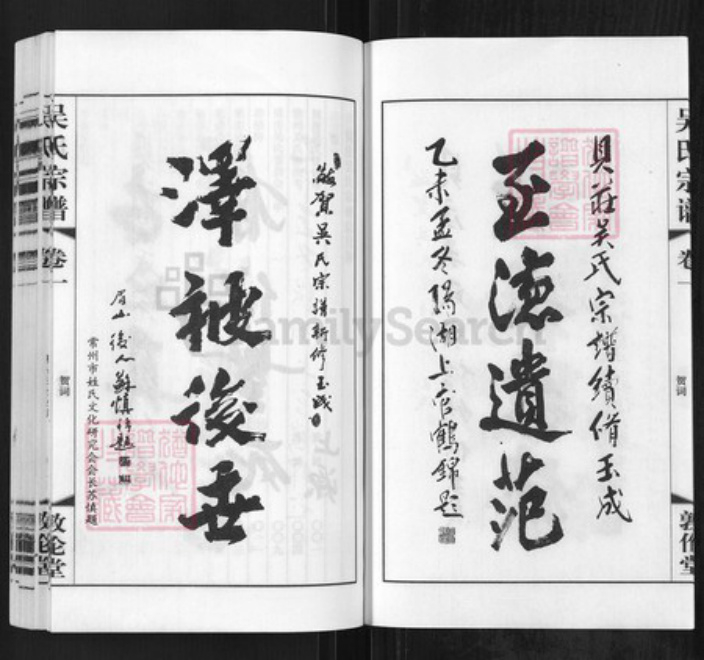 吴氏宗谱
卷一
贺词
敦伦堂
貝莊吴氏宗譜續修玉成
至德遺范
乙未孟冬陽湖上官鶴錦题
敬贺吴氏宗譜新修玉成
澤被後世
眉山後人蘇慎传题
常州市姓氏文化研究会会长苏慎题
吴氏宗谱
卷一
敦伦堂
FamilySearch